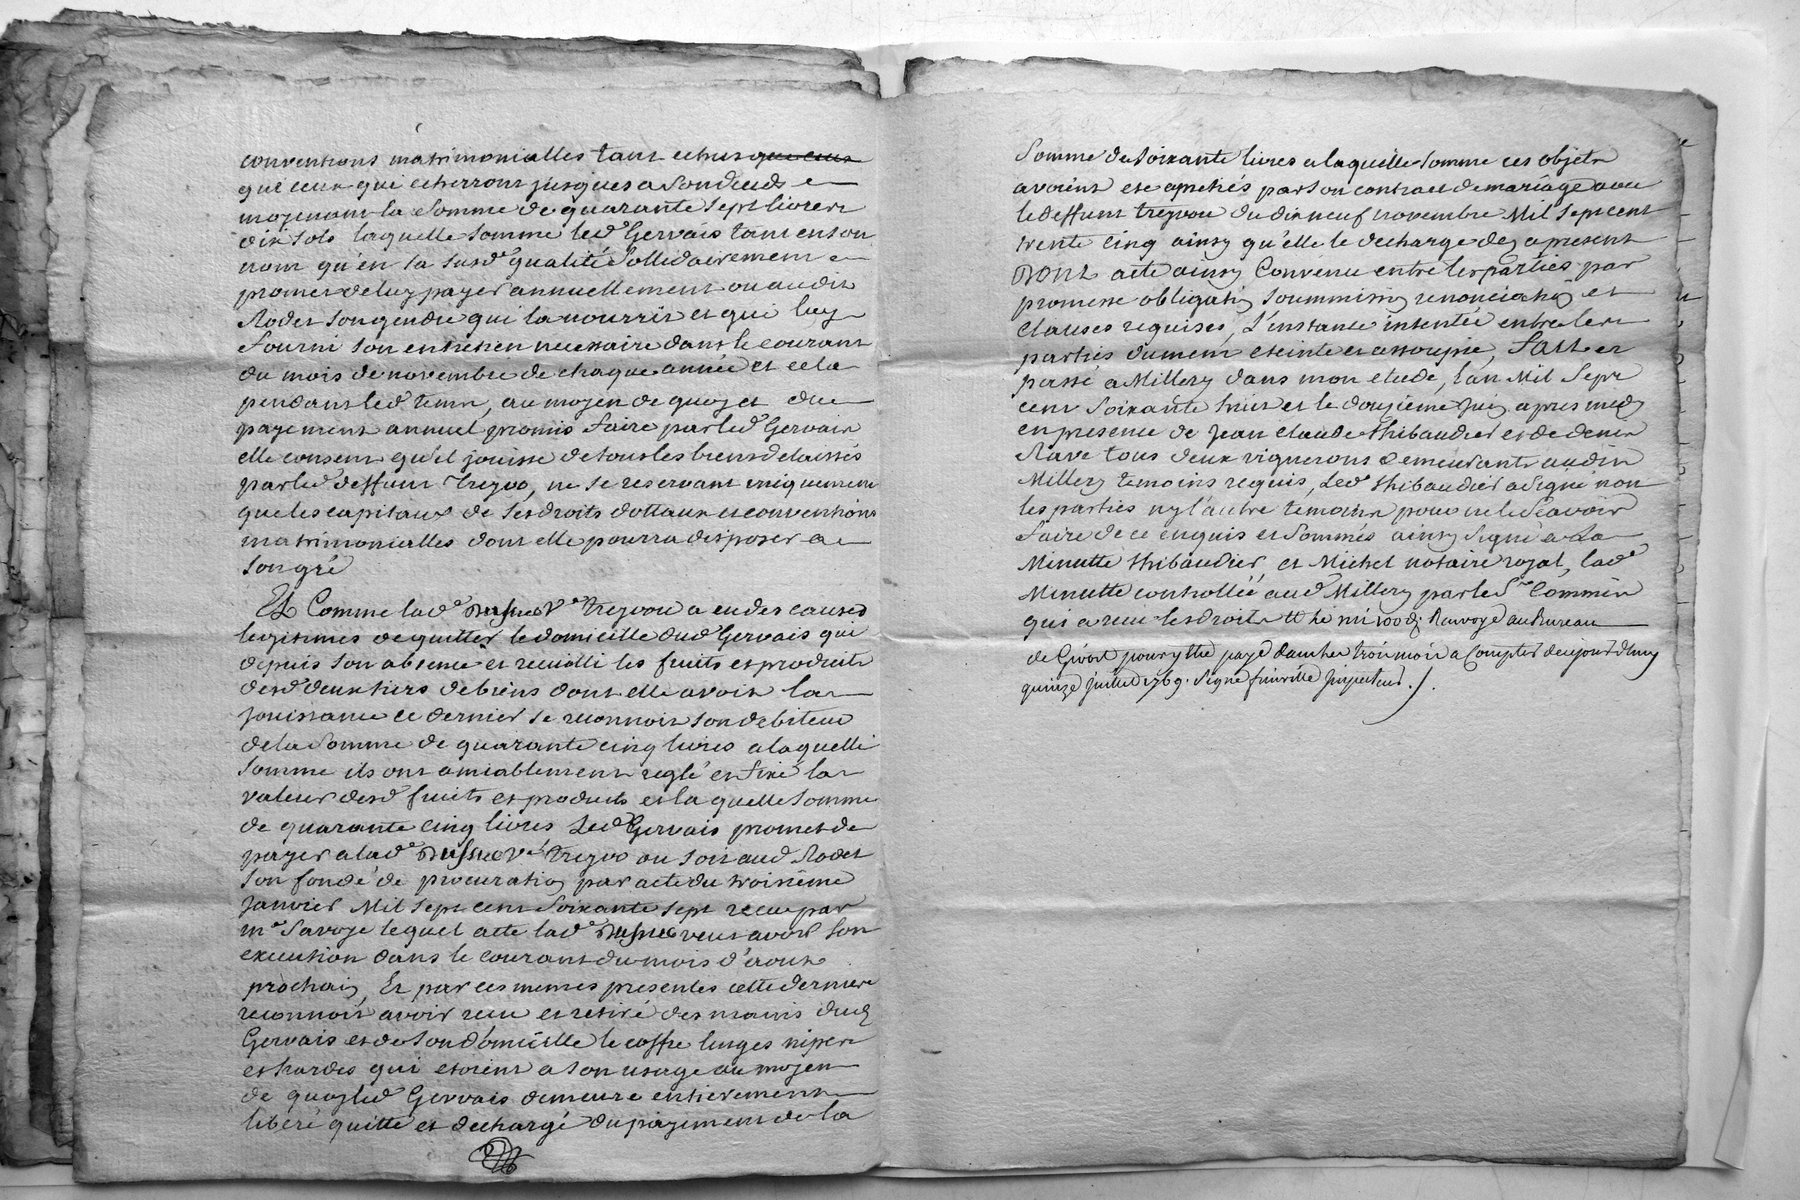 conventions matrimonialles tant echus que ceux
que ceux qui echerrons jusques a son deceds
moyenant la somme de quarante sept livres
dix sols laquelle somme led Gervais tant en son
nom qu'en sa susd qualité sollidairement
promet de luy payer annuellement ou audit
Rodet son gendre qui la nourrit et qui luy
fourni son entretien necessaire dans le courant
du mois de novembre de chaque année et cela
pendant led tems, au moyen de quoy et du
payement annuel promis faire par led Gervais
elle consent qu'il jouisse de tous les biens delaissés
par led deffunt Treyvo, ne se reservant uniquement
que les capitaux de ses droits dottaux et conventions
matrimonialles dont elle pourra disposer a
son gré
Et Comme lad Ve treyvou a eu des causes
legitimes de quitter le domicille dud Gervais qui
depuis son absence et recuilli les fruits et produits
desd deux tiers de biens dont elle avoit la
jouissance ce dernier se reconnoit son debiteur
de la somme de quarante cinq livres a laquelle
somme ils ont amiablement reglé et fixé la
valeur desd fruits et produits et laquelle somme
de quarante cinq livres Led Gervais promet de
payer a lad Ve Treyvo ou soit aud Rodet
son fondé de procuration par acte du troisième
Janvier Mil sept cent soixante sept receu par
me Savoye lequel acte lad veut avoir son
execution dans le courant du mois d'aoust
prochain, Et par ces memes presentes cette derniere
reconnoit avoir receu et retiré des mains dud
Gervais et de son domicille le coffre linges nipes
et hardes qui etoient a son usage au moyen
de quoy led Gervais demeure entierement
liberé quitte et dechargé du payement de la
somme de soixante livres a laquelle somme ces objets
avoient eté apretiés par son contract de mariage avec
le deffunt treyvou du dix neuf novembre Mil sept cent
trente cinq ainsy qu'elle le decharge dez a present
DONT acte ainsy Convenu entre les parties par
promesse obligation soummission renonciation et
clauses requises, L'instance intentée entre les
parties dument eteinte et assoupie, FAIT et
passé a Millery dans mon etude, l'an Mil Sept
cent Soixante huit et le douzieme juin apres midy
en presence de Jean Claude Thibaudier et de denis
Rave tous deux vignerons demeurants audit
Millery temoins requis, Led Thibaudier a signé non
les parties ny l'autre temoin pour ne le sçavoir
faire de ce enquis et sommés ainsy signé a La
Minutte Thibaudier, et Michel notaire royal, Lad
Minutte controllée aud Millery par led Sr Commin
qui a receu les droits Renvoyé au Bureau
de Givort pour y etre payé dans les trois mois a Compter de ce jourd'huy
quinze juillet 1769. Signé finville Inspecteur ./.